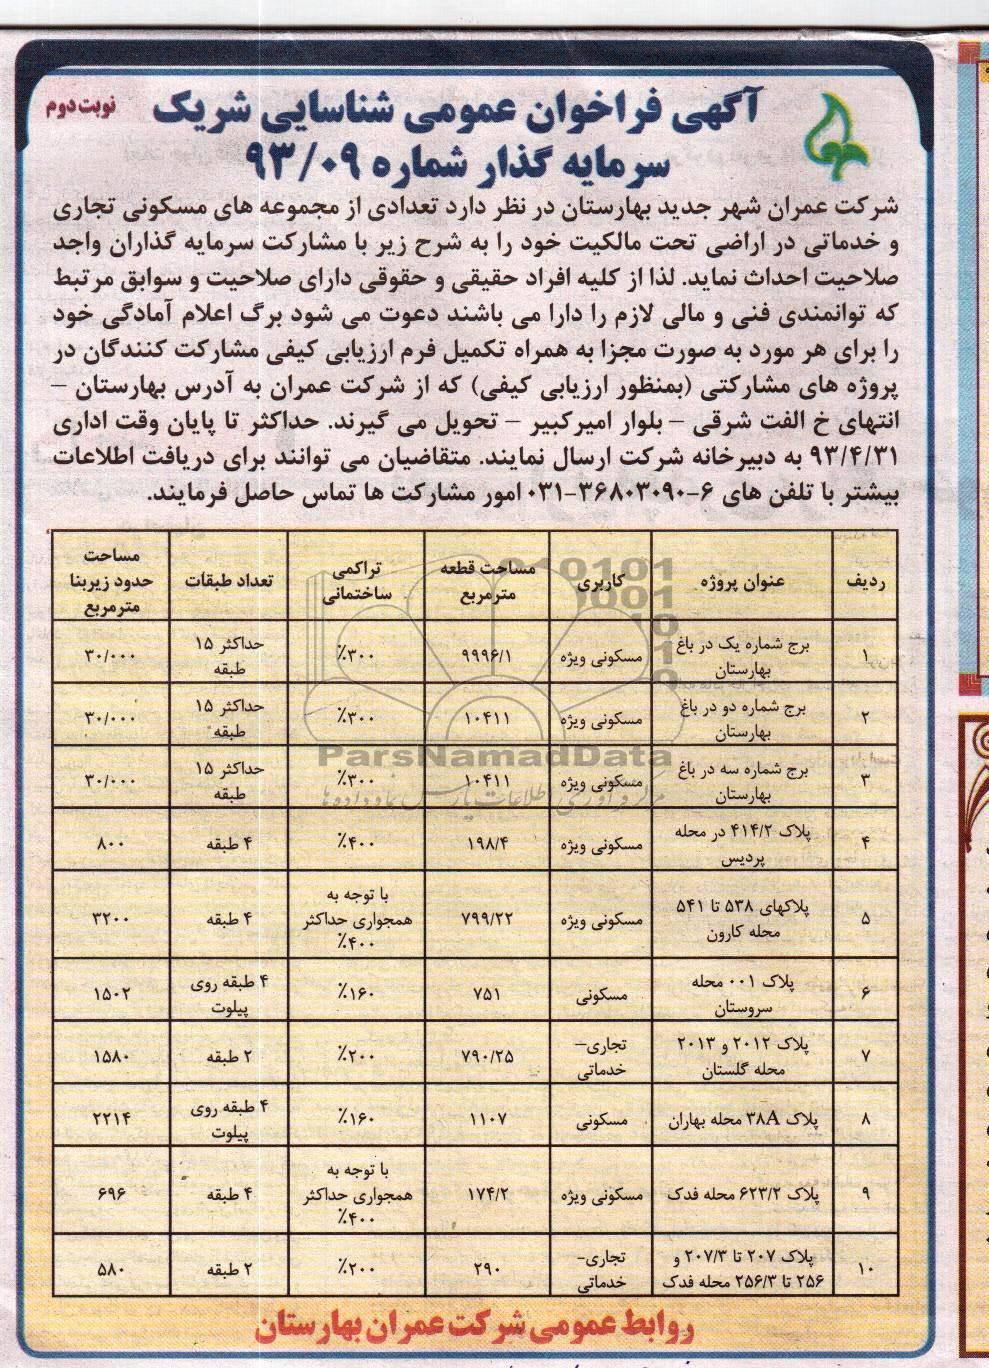 آگهی فراخوان عمومی شناسایی شریک
نوبت دوم
سرمایه گذار شماره ۹۳/۰۹
شرکت عمران شهر جدید بهارستان در نظر دارد تعدادی از مجموعه های مسکونی تجاری
و خدماتی در اراضی تحت مالکیت خود را به شرح زیر با مشارکت سرمایه گذاران واجد
صلاحیت احداث نماید. لذا از کلیه افراد حقیقی و حقوقی دارای صلاحیت و سوابق مرتبط
که توانمندی فنی و مالی لازم را دارا می باشند دعوت می شود برگ اعلام آمادگی خود
را برای هر مورد به صورت مجزا به همراه تکمیل فرم ارزیابی کیفی مشارکت کنندگان در
پروژه های مشارکتی (بمنظور ارزیابی کیفی) که از شرکت عمران به آدرس بهارستان –
انتهای خ الفت شرقی – بلوار امیرکبیر – تحویل می گیرند. حداکثر تا پایان وقت اداری
۹۳/۴/۳۱ به دبیرخانه شرکت ارسال نمایند. متقاضیان می توانند برای دریافت اطلاعات
بیشتر با تلفن های ۶-۳۶۸۰۳۰۹۰-۰۳۱ امور مشارکت ها تماس حاصل فرمایند.
ردیف عنوان پروژه کاربری مساحت قطعه مترمربع تراکمی ساختمانی تعداد طبقات مساحت حدود زیربنا مترمربع
۱ برج شماره یک در باغ بهارستان مسکونی ویژه ۹۹۹۶/۱ ۳۰۰٪ حداکثر ۱۵ طبقه ۳۰/۰۰۰
۲ برج شماره دو در باغ بهارستان مسکونی ویژه ۱۰۴۱۱ ۳۰۰٪ حداکثر ۱۵ طبقه ۳۰/۰۰۰
۳ برج شماره سه در باغ بهارستان مسکونی ویژه ۱۰۴۱۱ ۳۰۰٪ حداکثر ۱۵ طبقه ۳۰/۰۰۰
۴ پلاک ۴۱۴/۲ در محله پردیس مسکونی ویژه ۱۹۸/۴ ۴۰۰٪ ۴ طبقه ۸۰۰
۵ پلاکهای ۵۳۸ تا ۵۴۱ محله کارون مسکونی ویژه ۷۹۹/۲۲ با توجه به همجواری حداکثر ۴۰۰٪ ۴ طبقه ۳۲۰۰
۶ پلاک ۰۰۱ محله سروستان مسکونی ۷۵۱ ۱۶۰٪ ۴ طبقه روی پیلوت ۱۵۰۲
۷ پلاک ۲۰۱۲ و ۲۰۱۳ محله گلستان تجاری– خدماتی ۷۹۰/۲۵ ۲۰۰٪ ۲ طبقه ۱۵۸۰
۸ پلاک ۳۸A محله بهاران مسکونی ۱۱۰۷ ۱۶۰٪ ۴ طبقه روی پیلوت ۲۲۱۴
۹ پلاک ۶۲۳/۲ محله فدک مسکونی ویژه ۱۷۴/۲ با توجه به همجواری حداکثر ۴۰۰٪ ۴ طبقه ۶۹۶
۱۰ پلاک ۲۰۷ تا ۲۰۷/۳ و ۲۵۶ تا ۲۵۶/۳ محله فدک تجاری– خدماتی ۲۹۰ ۲۰۰٪ ۲ طبقه ۵۸۰
ParsNamadData
روابط عمومی شرکت عمران بهارستان